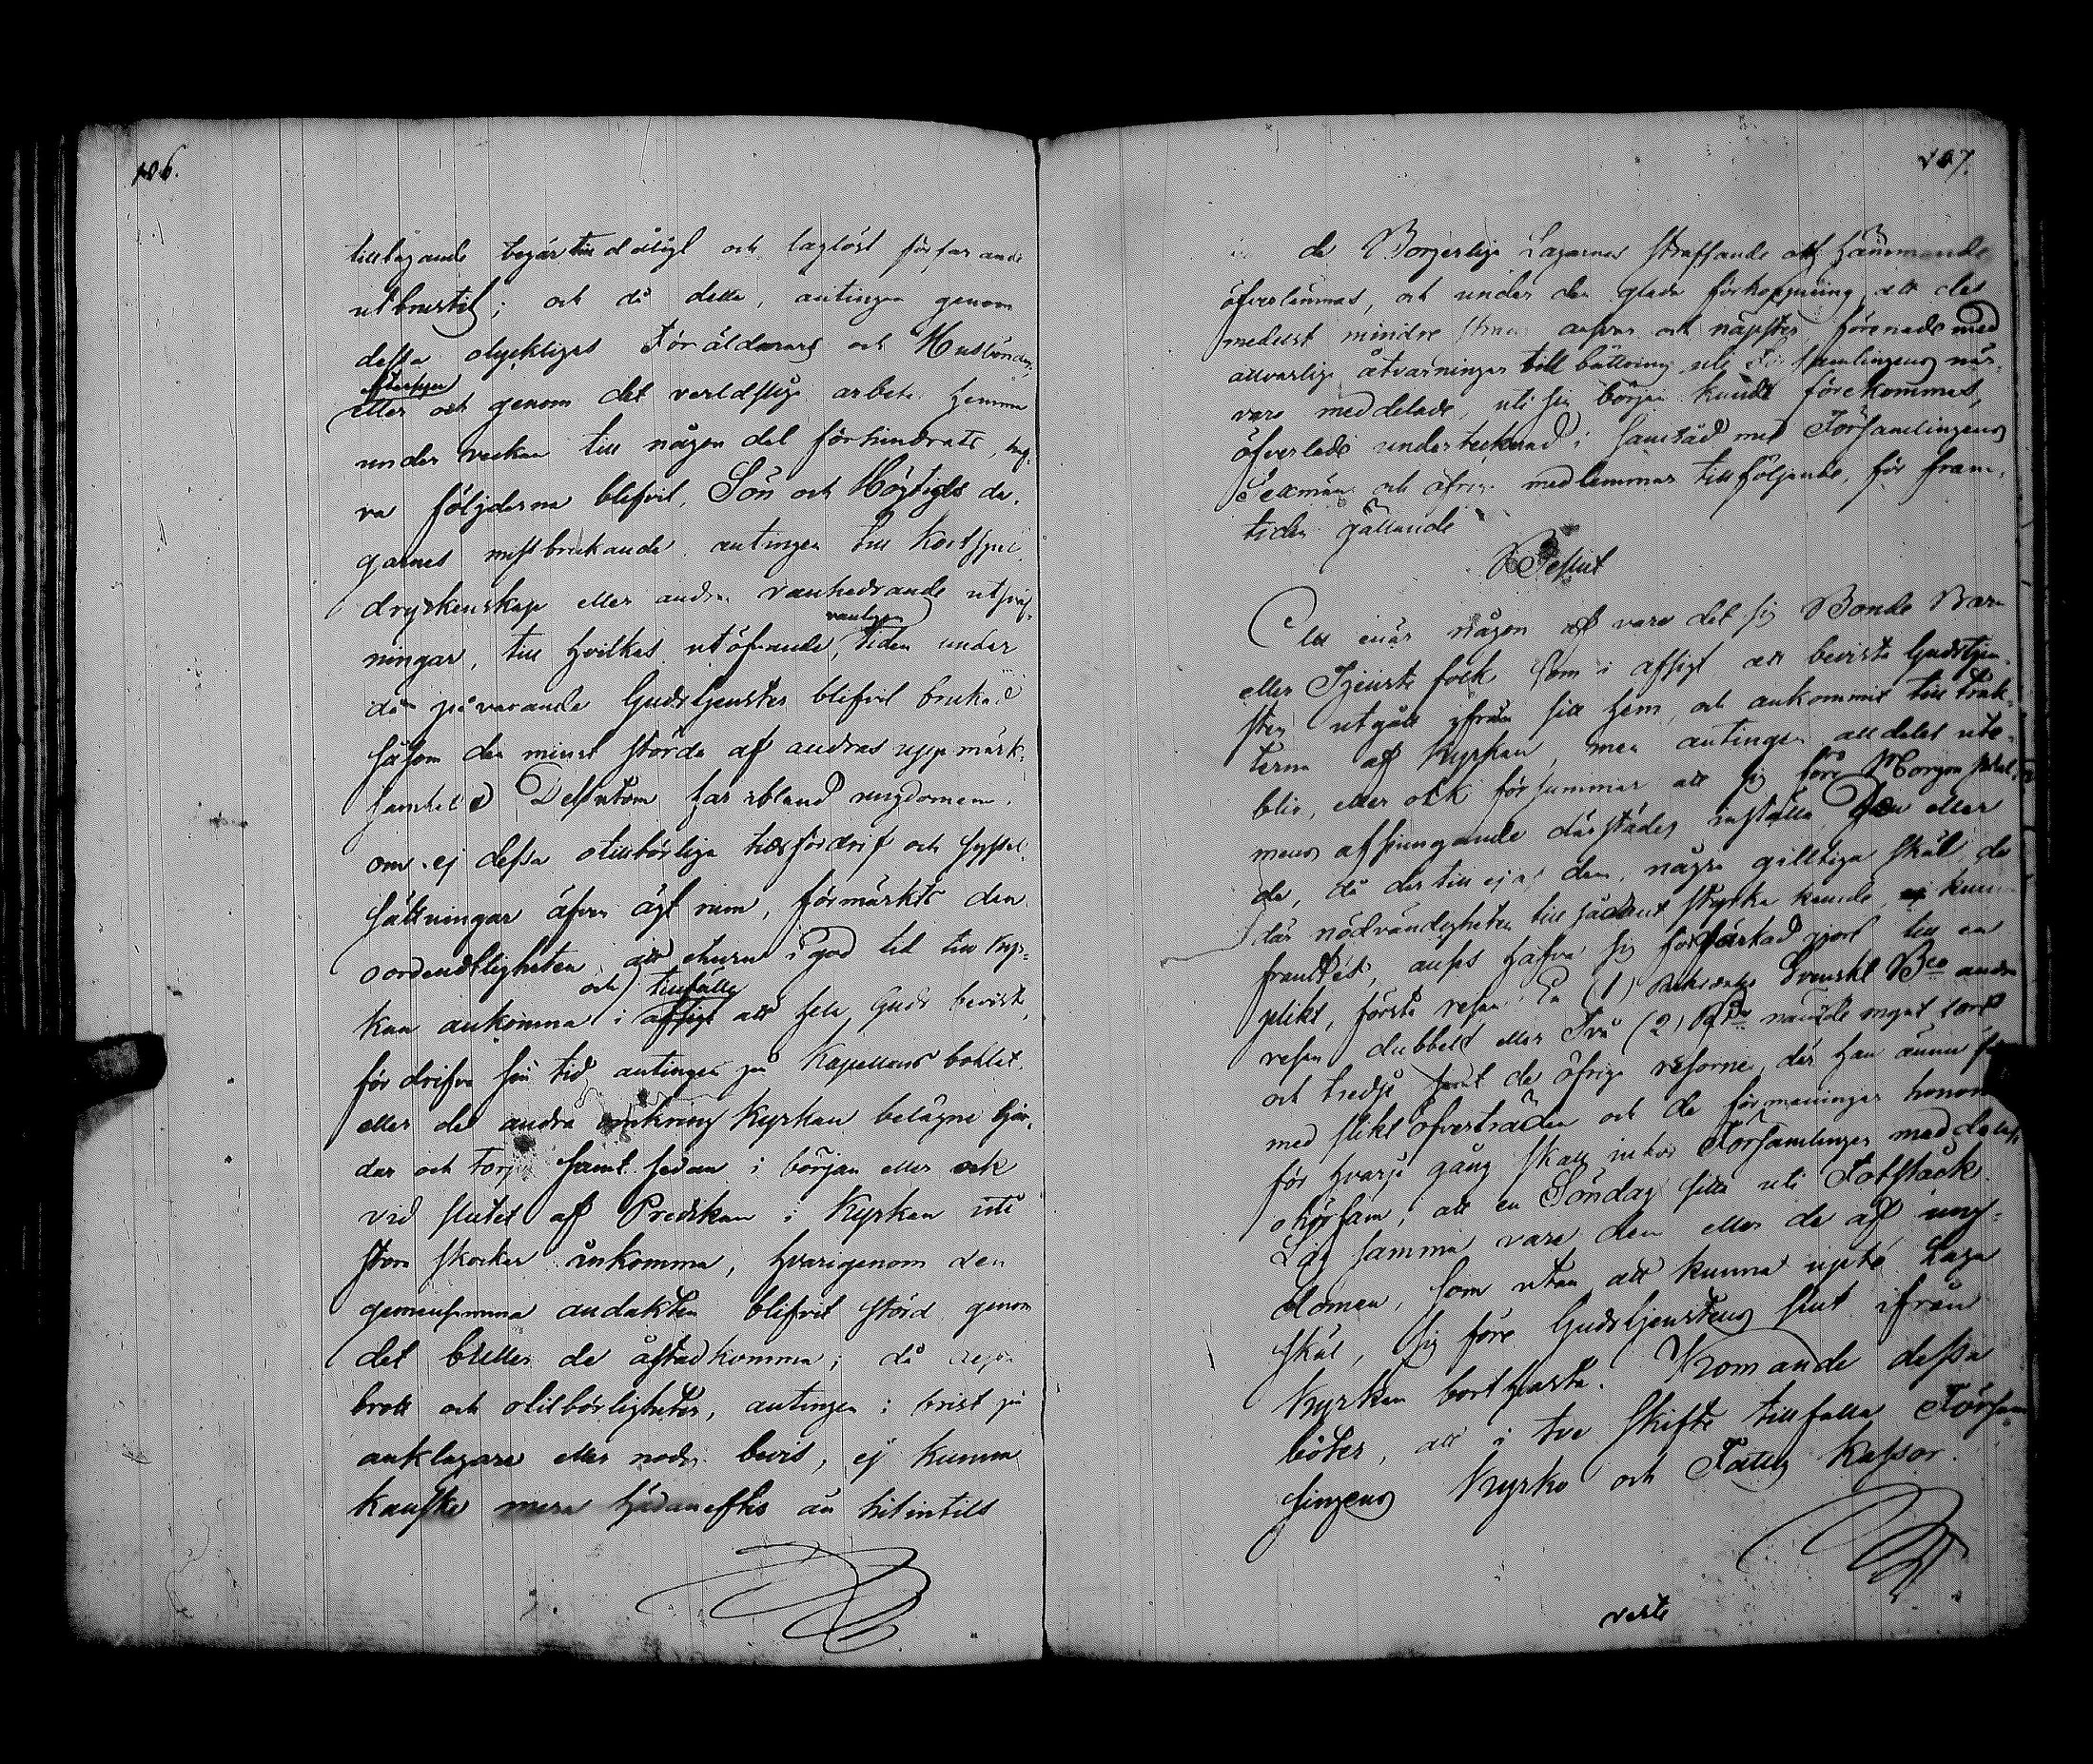 106.
tilltagande begär till dåligt och laglöst förfarande
utbrustit; och då detta, antingen genom
dessa olyckliges Föräldrars och Husbönders,
eller och genom det verldsliga arbete hemma
under veckan till någon del förhindrats,
va följderna blifvit, Sön och Högtids da-
garnes missbrukande, antingen till Kortspel
dryckenskap eller andra vanhedrande utsväf-
vanligen
ningar, till hvilkas utöfvande, tiden under
då påvarande Gudstjenster blifvit brukad
såsom den minst störda af andras uppmärk-
samhet Dessutom har ibland ungdomen,
om ej dessa otillbörliga tidsfördrif och syssel-
sättningar äfven ägt rum, förmärkts den
oordentligheten att ehuru i god tid till Kyr-
och tillfälle
kan ankomma i afsigt att hela Guds
fördrifva sin tid antingen på Kapellans bohlet,
eller de andra omkring Kyrkan belägne Går-
dar och Torp samt sedan i början eller ock
vid slutet af Predikan i Kyrkan uti
stora skockar inkomma, hvarigenom den
gemensamma andakten blifvit störd genom
det buller de åstadkomma; då
brott och otilbörligheter, antingen i brist på
anklagare eller nödig bevis, ej kunna
kanske mera hädanefter än hitintills
107.
de Borgerliga Lagarnes straffande och hämmande
öfverlemnas, och under den glada förhoppning att det
medelst mindre ansvar och näpster förenade med
allvarliga åtvarningar till bättring uti Församlingens när-
varo meddelade, uti sin början kunde förekommas,
öfverlade undertecknad i samråd med Församlingens
Sexmän och öfrige medlemmar till följande, för fram-
tiden gällande
Beslut
Att enär någon af vare det sig Bonde Barn
eller Tjenste folk som i afsigt att bevista Gudstjen-
sten utgått ifrån sitt hem, och ankommit till trak-
terna af Kyrkan, men antingen alldeles ute-
blir, eller ock försummar att sig före Morgon psal-
mens afsjungande därstädes inställa den eller
de, då dertill ej af dem, några gilltiga skäl, de
där nödvändigheten till sådant styrka kunde, ej kunna
framtés, anses hafva sig förfärkad gjord till en
plikt, första resan En (1) Riksdaler Svenskt Bco andra
resan dubbelt eller Två (2) nämde mynt
och tredje samt de öfriga resorne, der han ännu
med slikt öfverträder och de förmaningar honom
för hvarje gång skall inför Församlingen meddelas
ohörsam, att en Söndag sitta uti Fotstock.
Lag samma vare den eller de af ung-
domen, som utan att kunna upté Laga
skäl, sig före Gudstjenstens slut ifrån
Kyrkan borthasta. Kommande dessa
böter, att i tve skifte tillfalla Försam-
lingens Kyrko och Fattig Kassor.